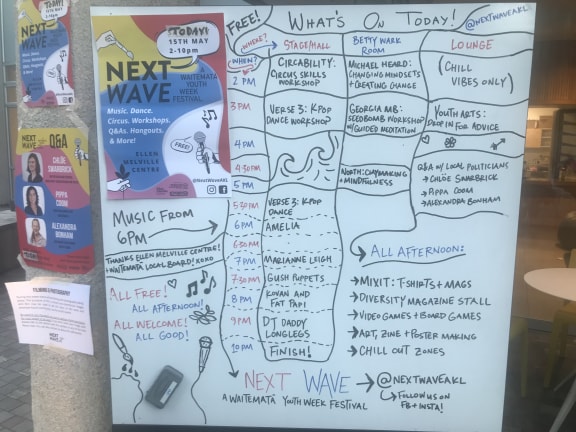 TODAY!
15TH MAY
2-10PM
NEXT
WAVE
A WAITEMATA
YOUTH WEEK
FESTIVAL
Music. Dance.
Circus. Workshops.
Q&As. Hangouts.
& More!
FREE!
ELLEN
MELVILLE
CENTRE
@NextWaveAKL
NEXT
WAVE
NEXT
WAVE
Q&A
CHLÖE
SWARBRICK
PIPPA
COOM
ALEXANDRA
BONHAM
FILMING & PHOTOGRAPHY
FREE!
WHAT'S ON TODAY!
@NEXTWAVEAKL
WHERE?
WHEN?
STAGE/HALL
BETTY WARK
ROOM
LOUNGE
(CHILL
VIBES ONLY)
2 PM
CIRCABILITY:
CIRCUS SKILLS
WORKSHOP
MICHAEL HEARD:
CHANGING MINDSETS
+ CREATING CHANGE
3 PM
VERSE 3: K-POP
DANCE WORKSHOP
GEORGIA MB:
SEEDBOMB WORKSHOP
W/ GUIDED MEDITATION
YOUTH ARTS:
DROP IN FOR ADVICE
4 PM
4:30 PM
NORTH: CLAYMAKING
+ MINDFULNESS
Q&A W/ LOCAL POLITICIANS
→ CHLÖE SWARBRICK
→ PIPPA COOM
→ ALEXANDRA BONHAM
5 PM
5:30 PM
VERSE 3: K-POP
DANCE
6 PM
AMELIA
6:30 PM
7 PM
MARIANNE LEIGH
7:30 PM
GUSH PUPPETS
8 PM
KOVAN AND
FAT PAPI
9 PM
DJ DADDY
LONGLEGS
10 PM
FINISH!
MUSIC FROM
6PM
THANKS ELLEN MELVILLE CENTRE!
+ WAITEMATĀ LOCAL BOARD! XOXO
ALL FREE!
ALL AFTERNOON!
ALL WELCOME!
ALL GOOD!
ALL AFTERNOON:
→ MIXIT: T-SHIRTS + MAGS
→ DIVERSITY MAGAZINE STALL
→ VIDEO GAMES + BOARD GAMES
→ ART, ZINE + POSTER MAKING
→ CHILL OUT ZONES
→ NEXT WAVE → @NEXTWAVEAKL
A WAITEMATĀ YOUTH WEEK FESTIVAL
FOLLOW US ON
FB + INSTA!